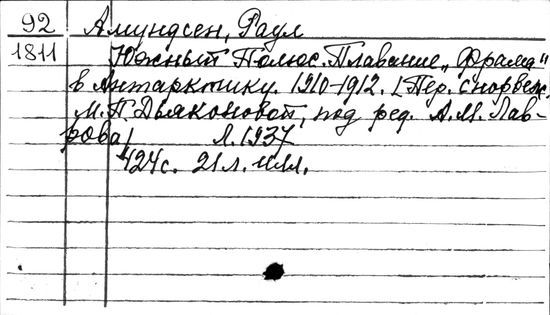 92 Амундсен, Раул
1811 Южный Полюс. Плавание „Фрама"
в Антарктику. 1910-1912. [Пер. с норвеж.
М.П. Дьяконовой, под ред. А.М. Лав-
рова]   Л. 1937
424 с. 21 л. илл.